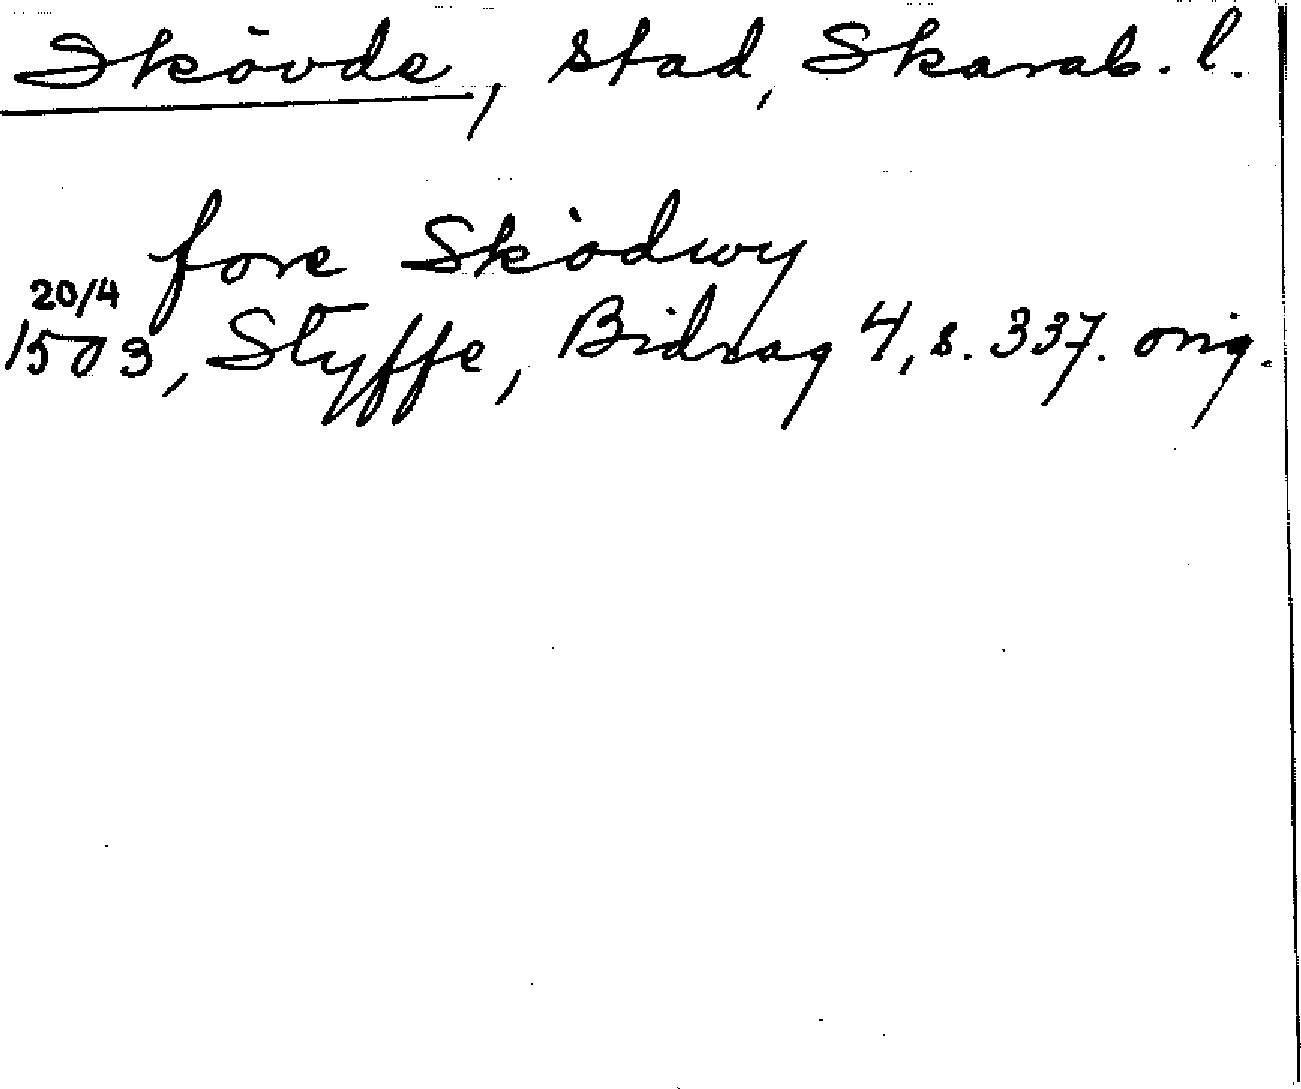 Skövde, stad, Skarab. l.
fore Sködwy
20/4
1503, Styffe, Bidrag 4, s. 337. orig.